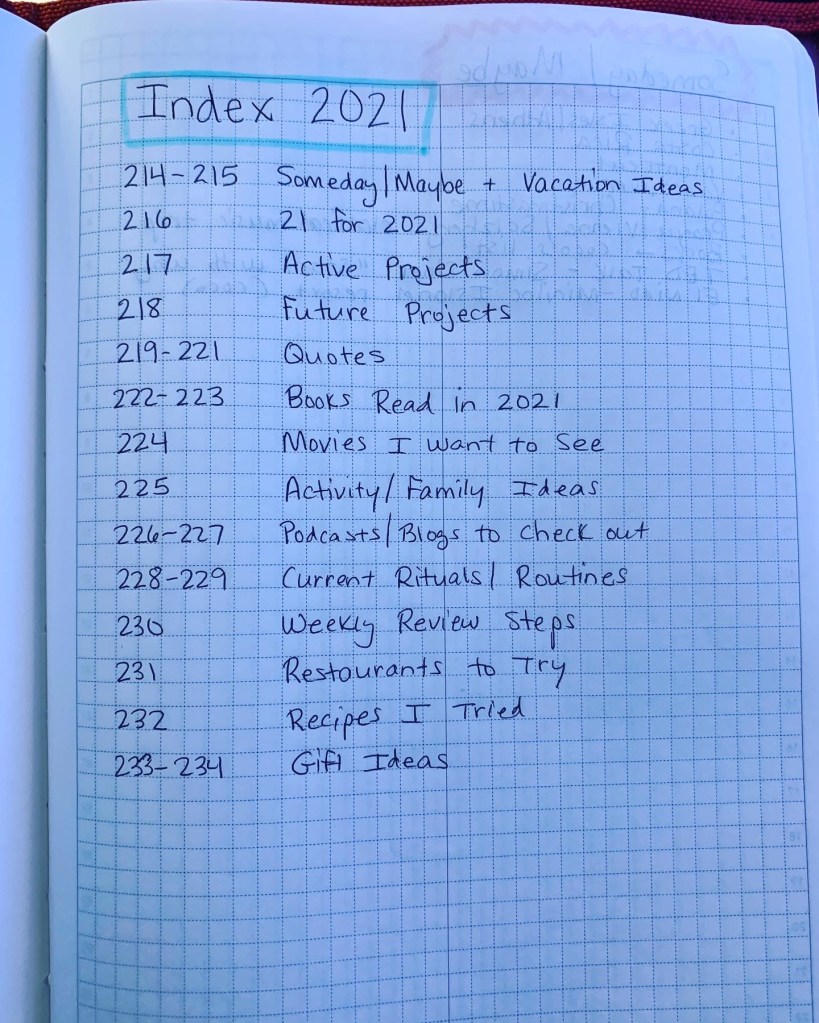 Index 2021
214-215 Someday/Maybe + Vacation Ideas
216 21 for 2021
217 Active Projects
218 Future Projects
219-221 Quotes
222-223 Books Read in 2021
224 Movies I want to see
225 Activity/Family Ideas
226-227 Podcasts/Blogs to check out
228-229 Current Rituals/Routines
230 Weekly Review Steps
231 Restourants to Try
232 Recipes I Tried
233-234 Gift Ideas
Someday/Maybe